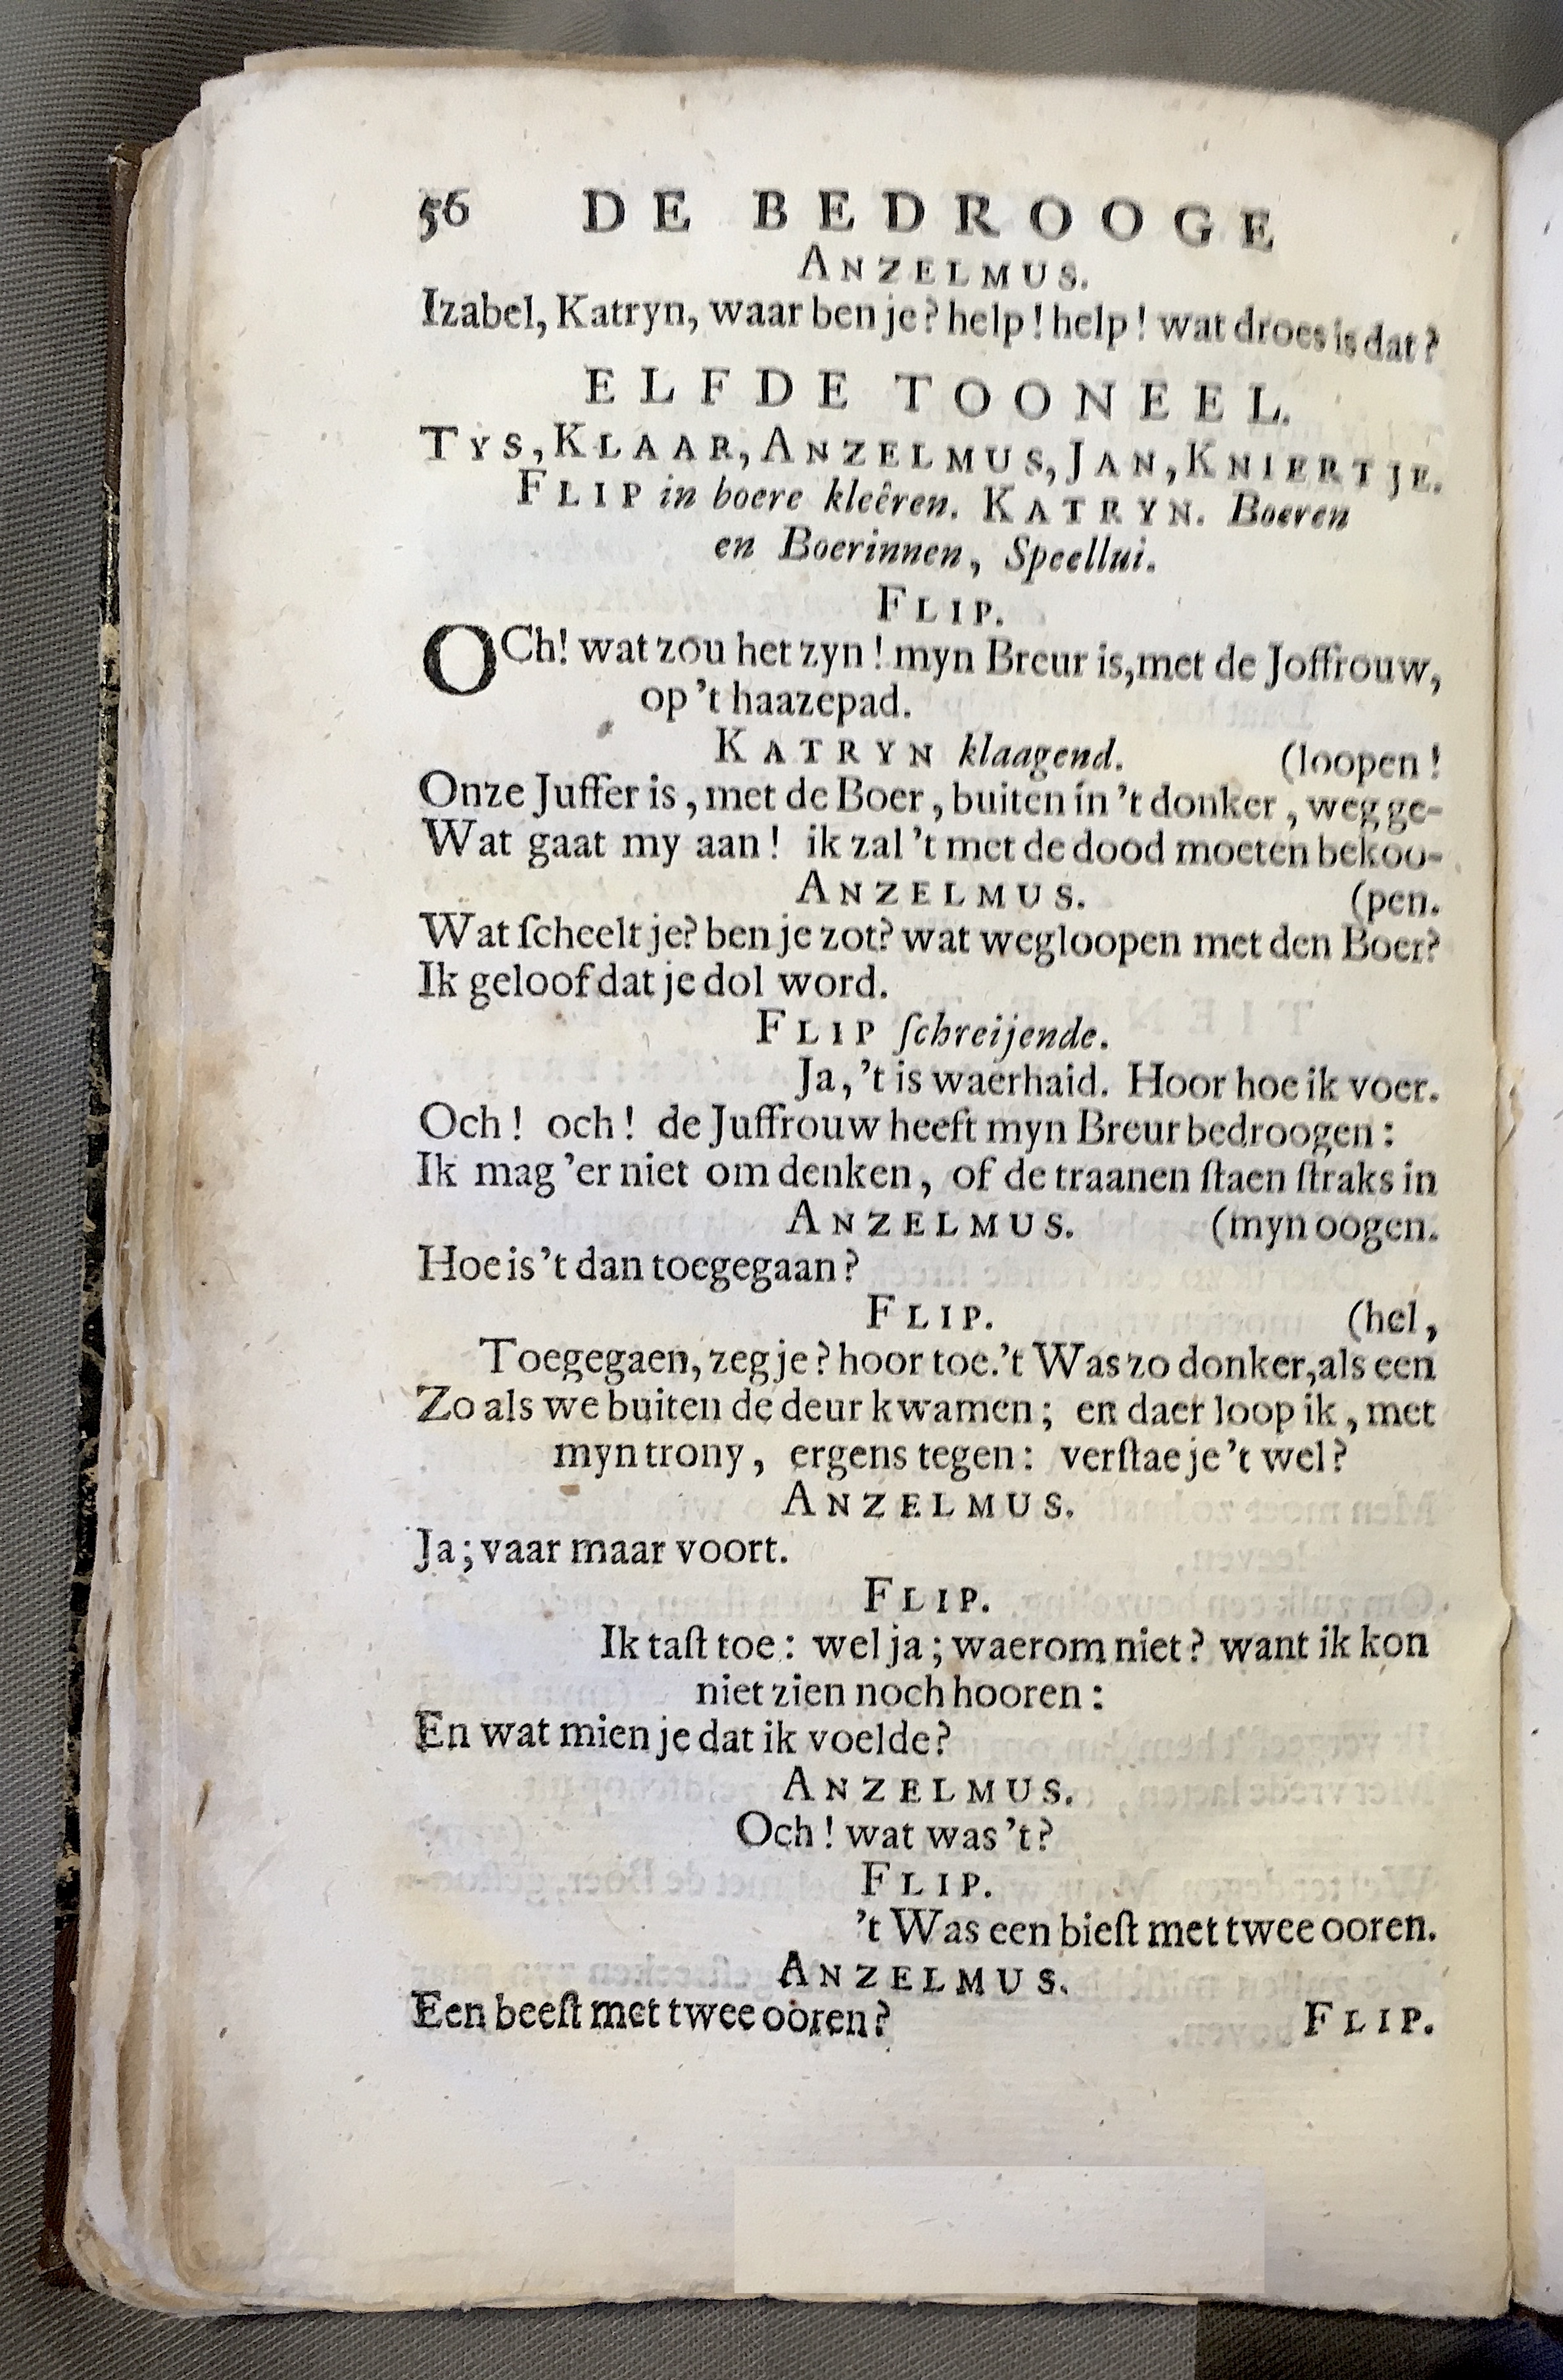 56 DE BEDROOGE
ANZELMUS.
Izabel, Katryn, waar ben je? help! help! wat droes is dat?
ELFDE TOONEEL.
TYS, KLAAR, ANZELMUS, JAN, KNIERTJE.
FLIP in boere kleêren. KATRYN. Boeren
en Boerinnen, Speellui.
FLIP.
OCh! wat zou het zyn! myn Breur is, met de Joffrouw,
op 't haazepad.
KATRYN klaagend. (loopen!
Onze Juffer is, met de Boer, buiten in 't donker, weg ge-
Wat gaat my aan! ik zal 't met de dood moeten bekou-
ANZELMUS. (pen.
Wat ſcheelt je? ben je zot? wat wegloopen met den Boer?
Ik geloof dat je dol word.
FLIP ſchreijende.
Ja, 't is waerhaid. Hoor hoe ik voer.
Och! och! de Juffrouw heeft myn Breur bedroogen:
Ik mag 'er niet om denken, of de traanen ſtaen ſtraks in
ANZELMUS. (myn oogen.
Hoe is 't dan toegegaan?
FLIP. (hel,
Toegegaen, zeg je? hoor toe. 't Was zo donker, als een
Zo als we buiten de deur kwamen; en daer loop ik, met
myn trony, ergens tegen: verſtae je 't wel?
ANZELMUS.
Ja; vaar maar voort.
FLIP.
Ik taſt toe: wel ja; waerom niet? want ik kon
niet zien noch hooren:
En wat mien je dat ik voelde?
ANZELMUS.
Och! wat was 't?
FLIP.
't Was een bieſt met twee ooren.
ANZELMUS.
Een beeſt met twee ooren? FLIP.